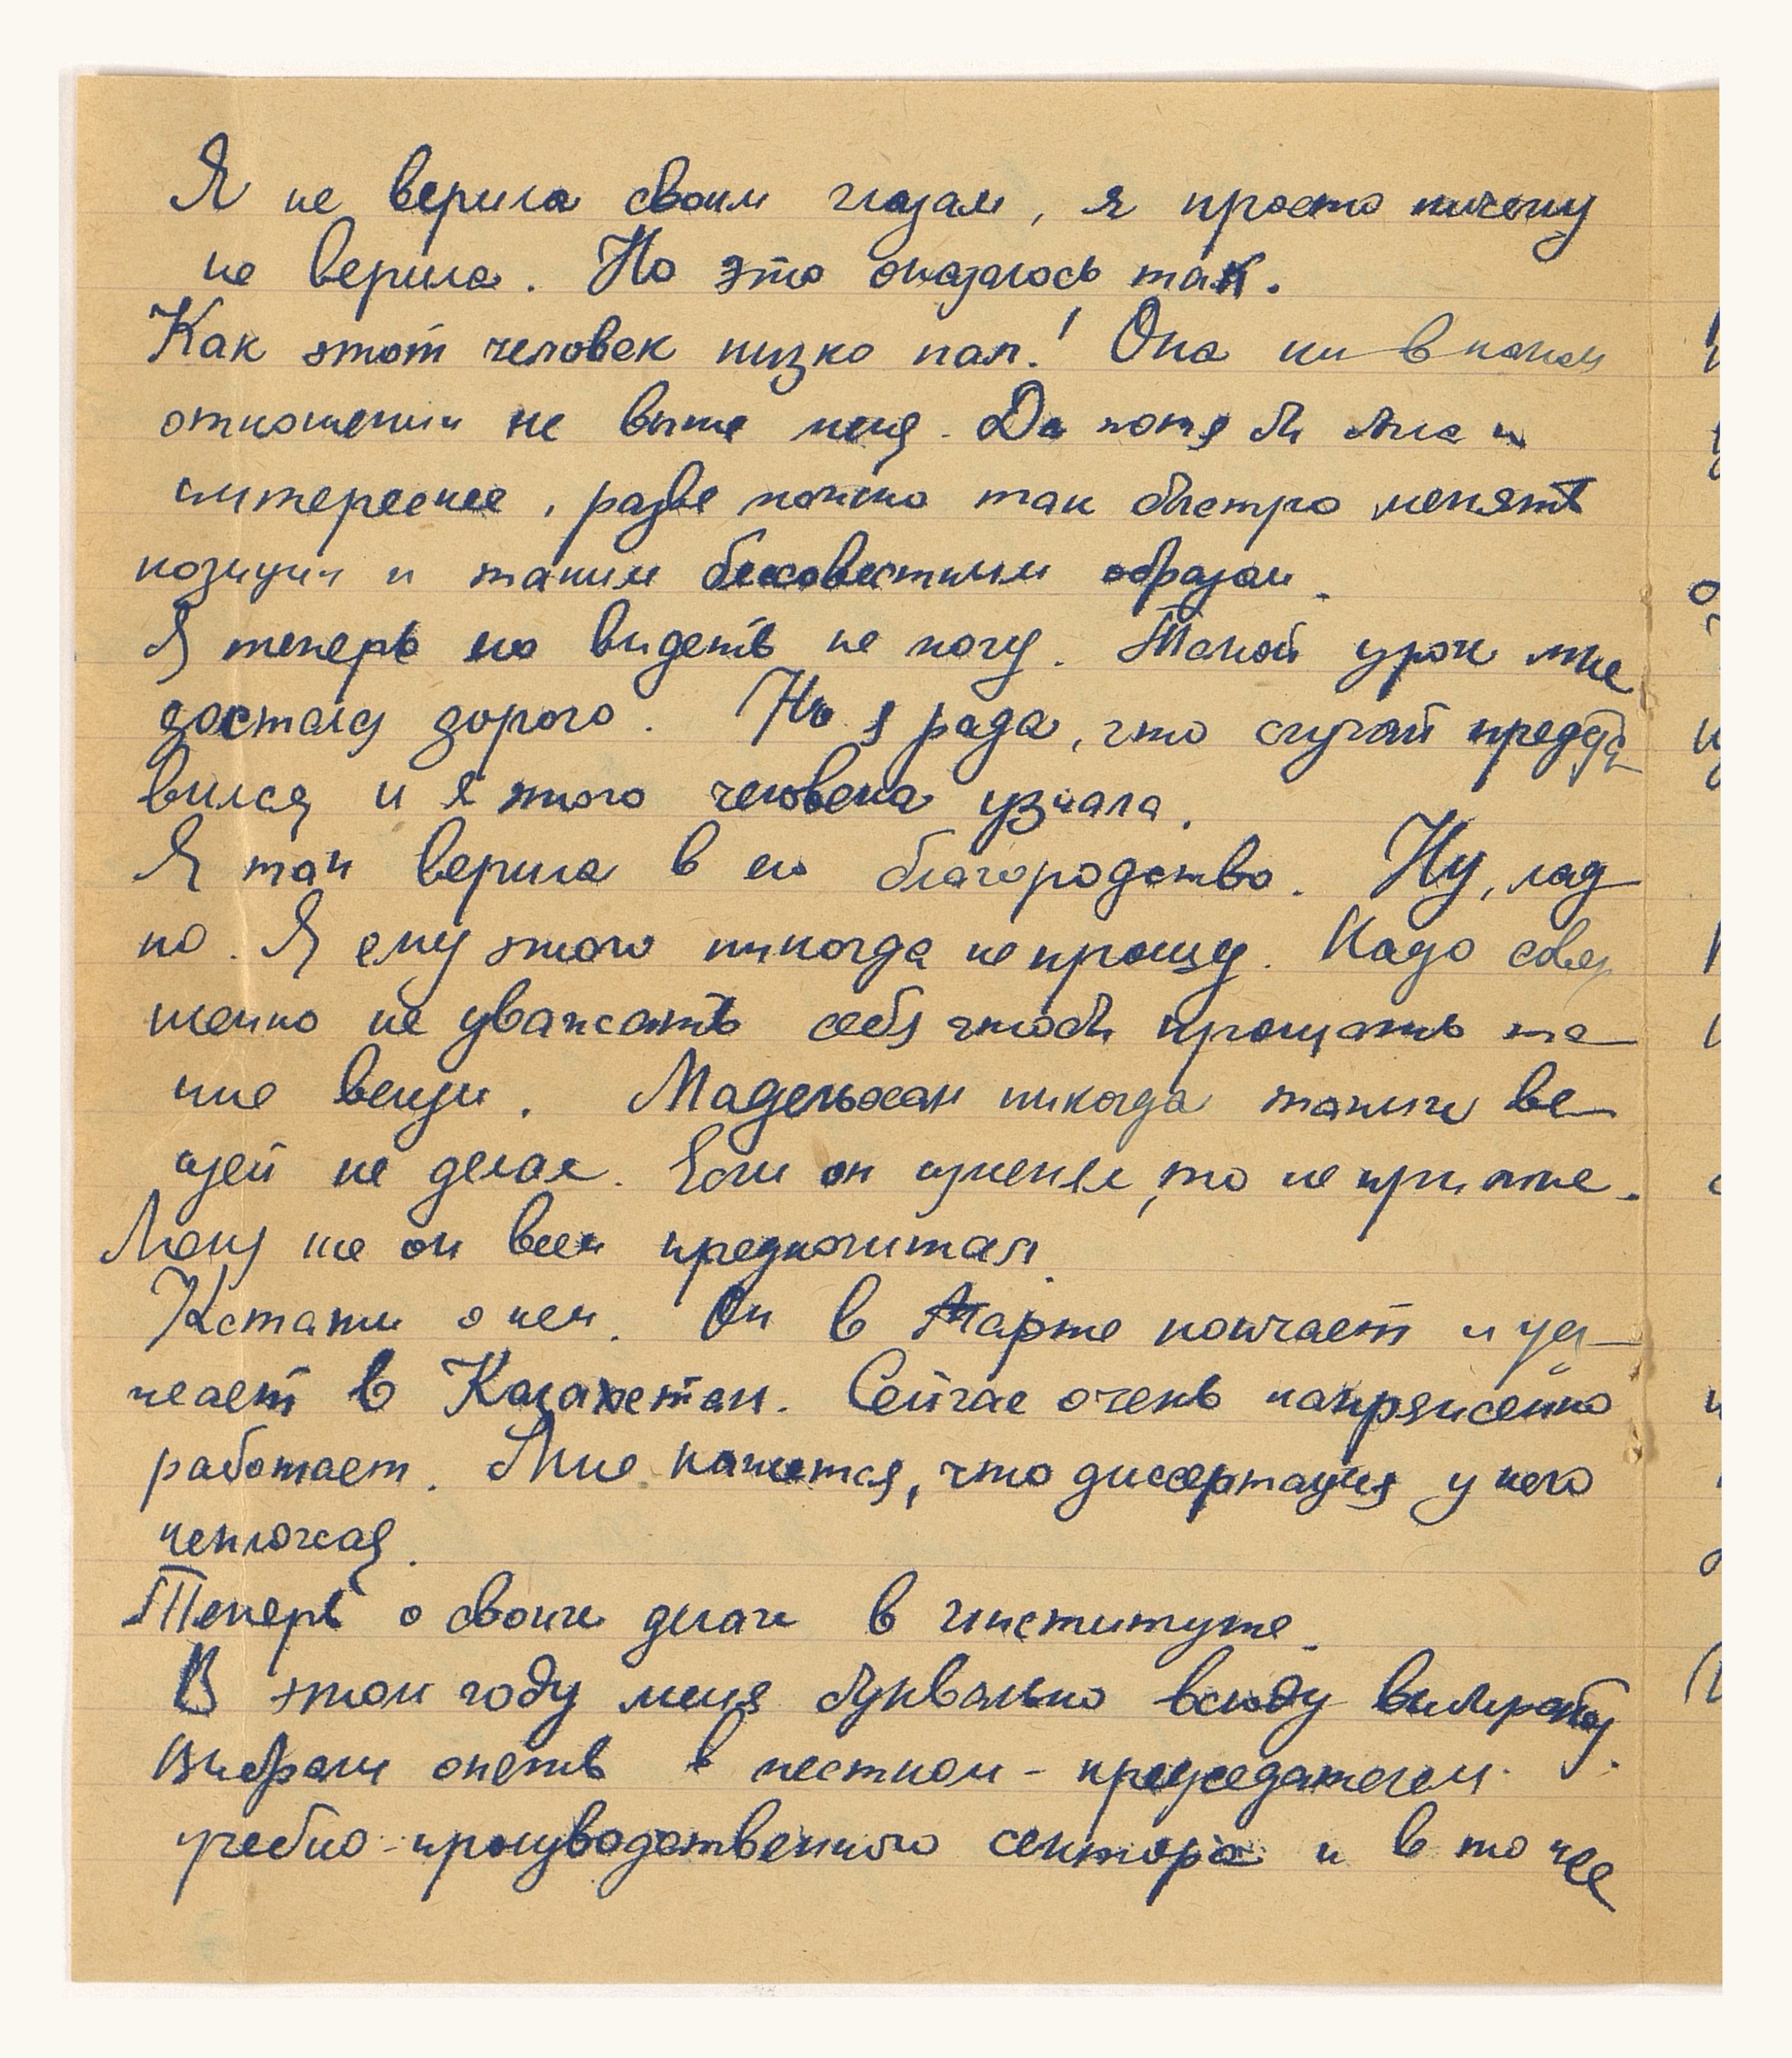 Я не верила своим глазам, я просто ничему
не верила. Но это оказалось так.
Как этот человек низко пал! Она ни в каком
отношении не выше меня. Да хотя бы была и
интереснее, разве можно так быстро менять
позиции и таким бессовестным образом.
Я теперь его видеть не могу. Такой урок мне
достался дорого. Но я рада, что случай предста-
вился и я этого человека узнала.
Я так верила в его благородство. Ну, лад-
но. Я ему этого никогда не прощу. Надо совер
шенно не уважать себя чтобы прощать та-
кие вещи. Мадельхан никогда таких ве-
щей не делал. Если он изменял, то не при мне.
Меня же он всем предпочитал.
Кстати о нем. Он в Марте кончает и уез-
жает в Казахстан. Сейчас очень напряженно
работает. Мне кажется, что диссертация у него
неплохая.
Теперь о своих делах в институте.
В этом году меня буквально всюду выбирают.
Выбрали опять в местком - председателем
учебно-производственного сектора и в то же